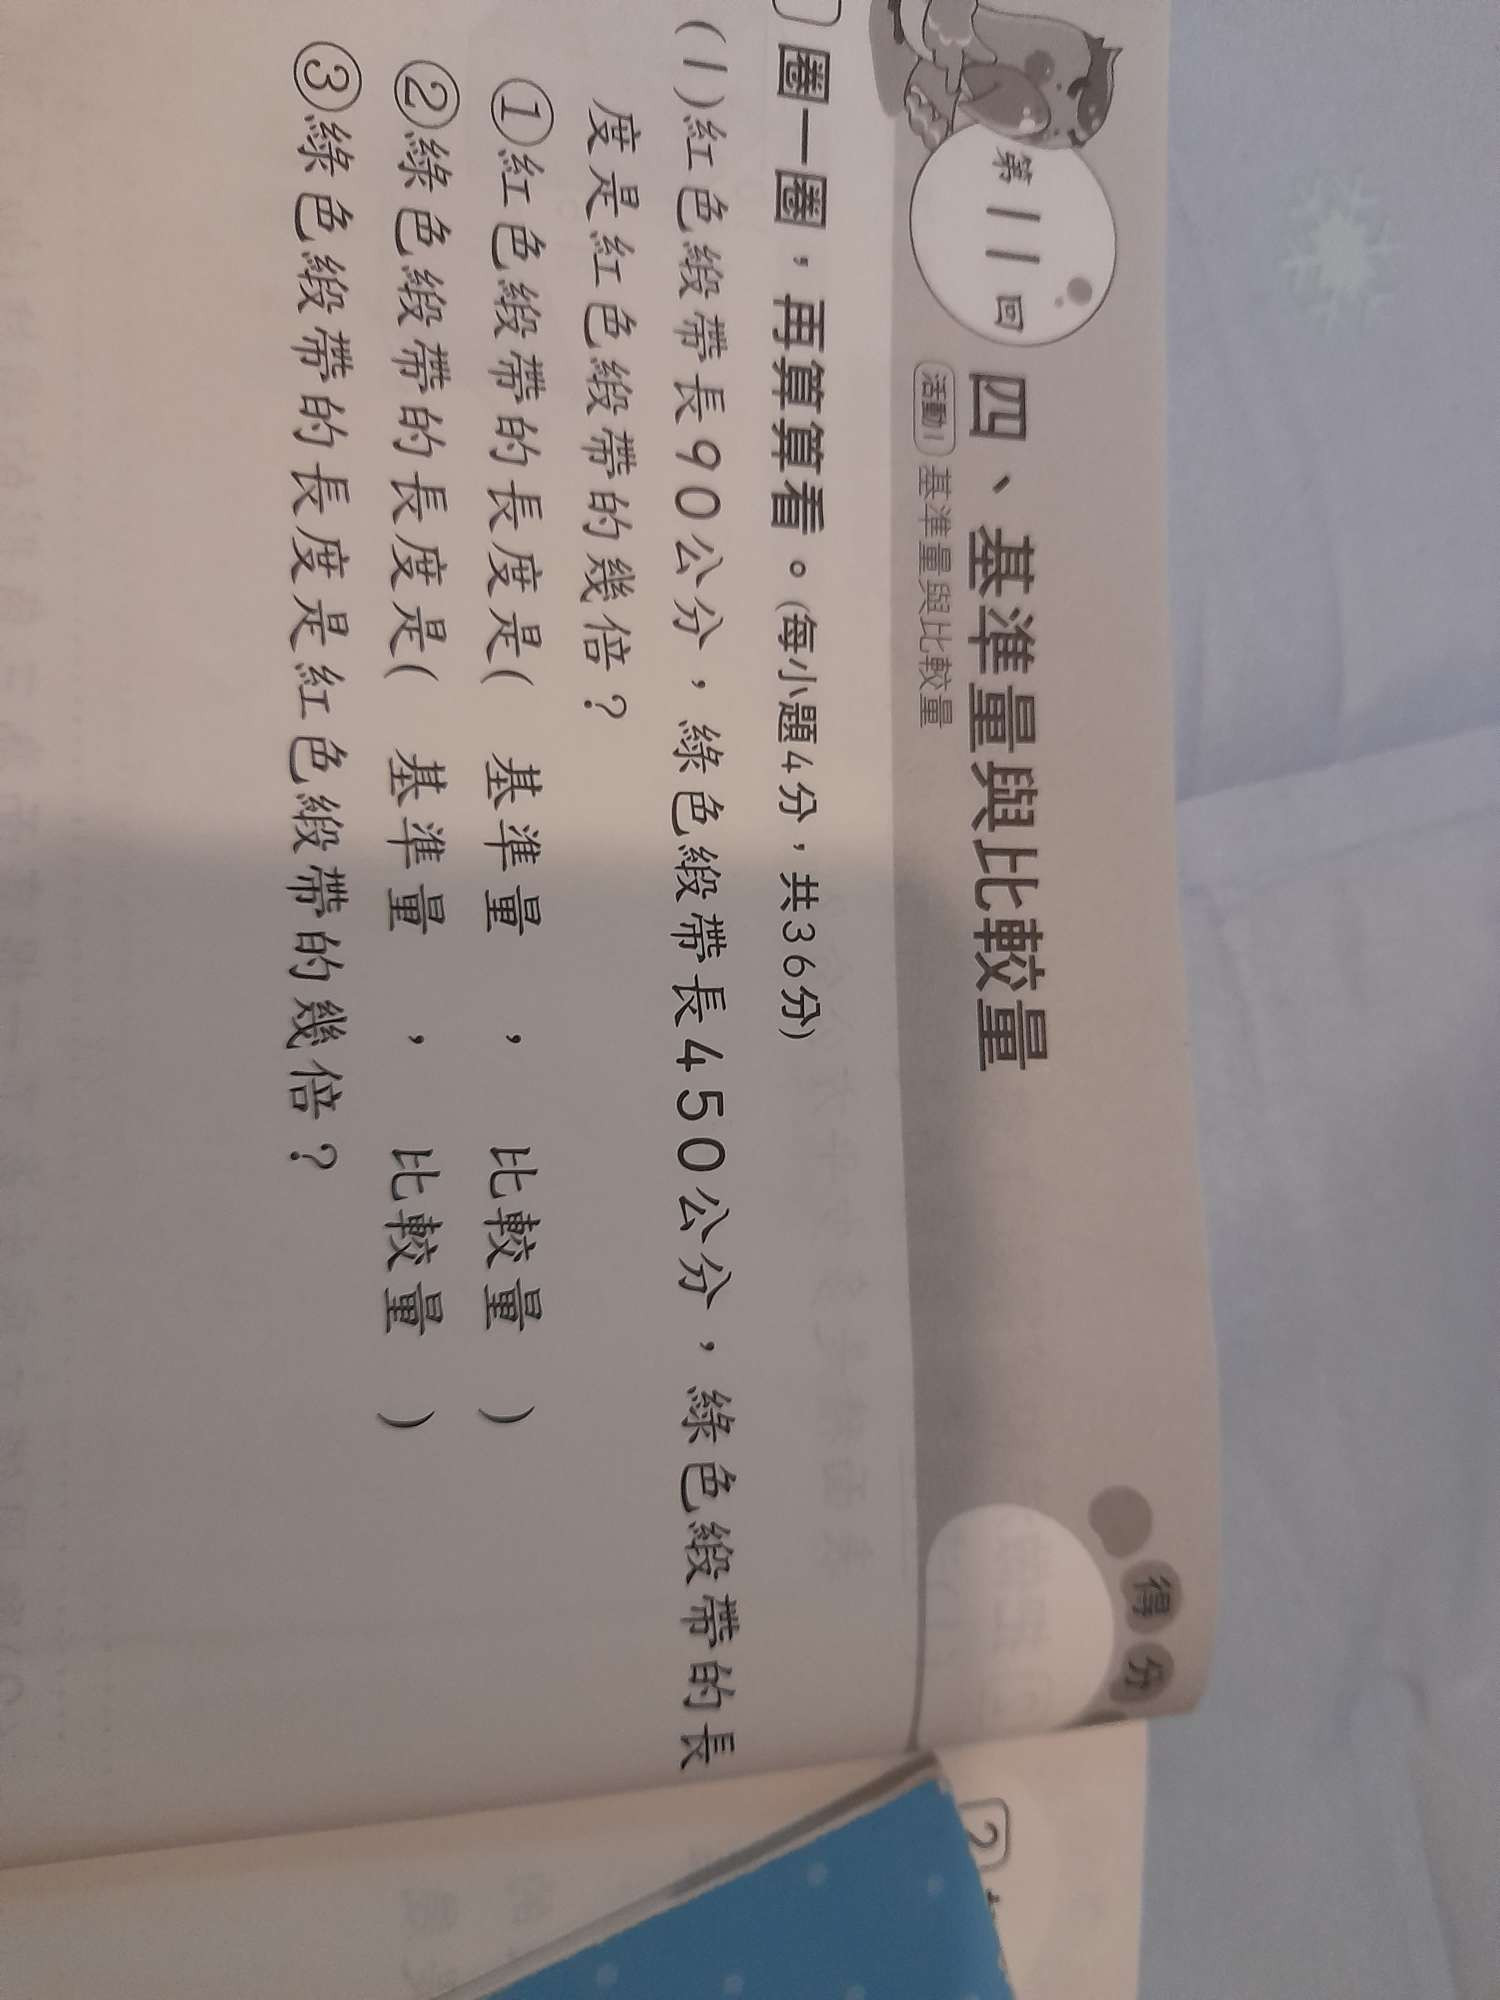 第11回
四、基準量與比較量
活動1 基準量與比較量
得分
圈一圈，再算算看。(每小題4分，共36分)
(1)紅色緞帶長90公分，綠色緞帶長450公分，綠色緞帶的長
度是紅色緞帶的幾倍？
①紅色緞帶的長度是( 基準量 ， 比較量 )
②綠色緞帶的長度是( 基準量 ， 比較量 )
③綠色緞帶的長度是紅色緞帶的幾倍？
2